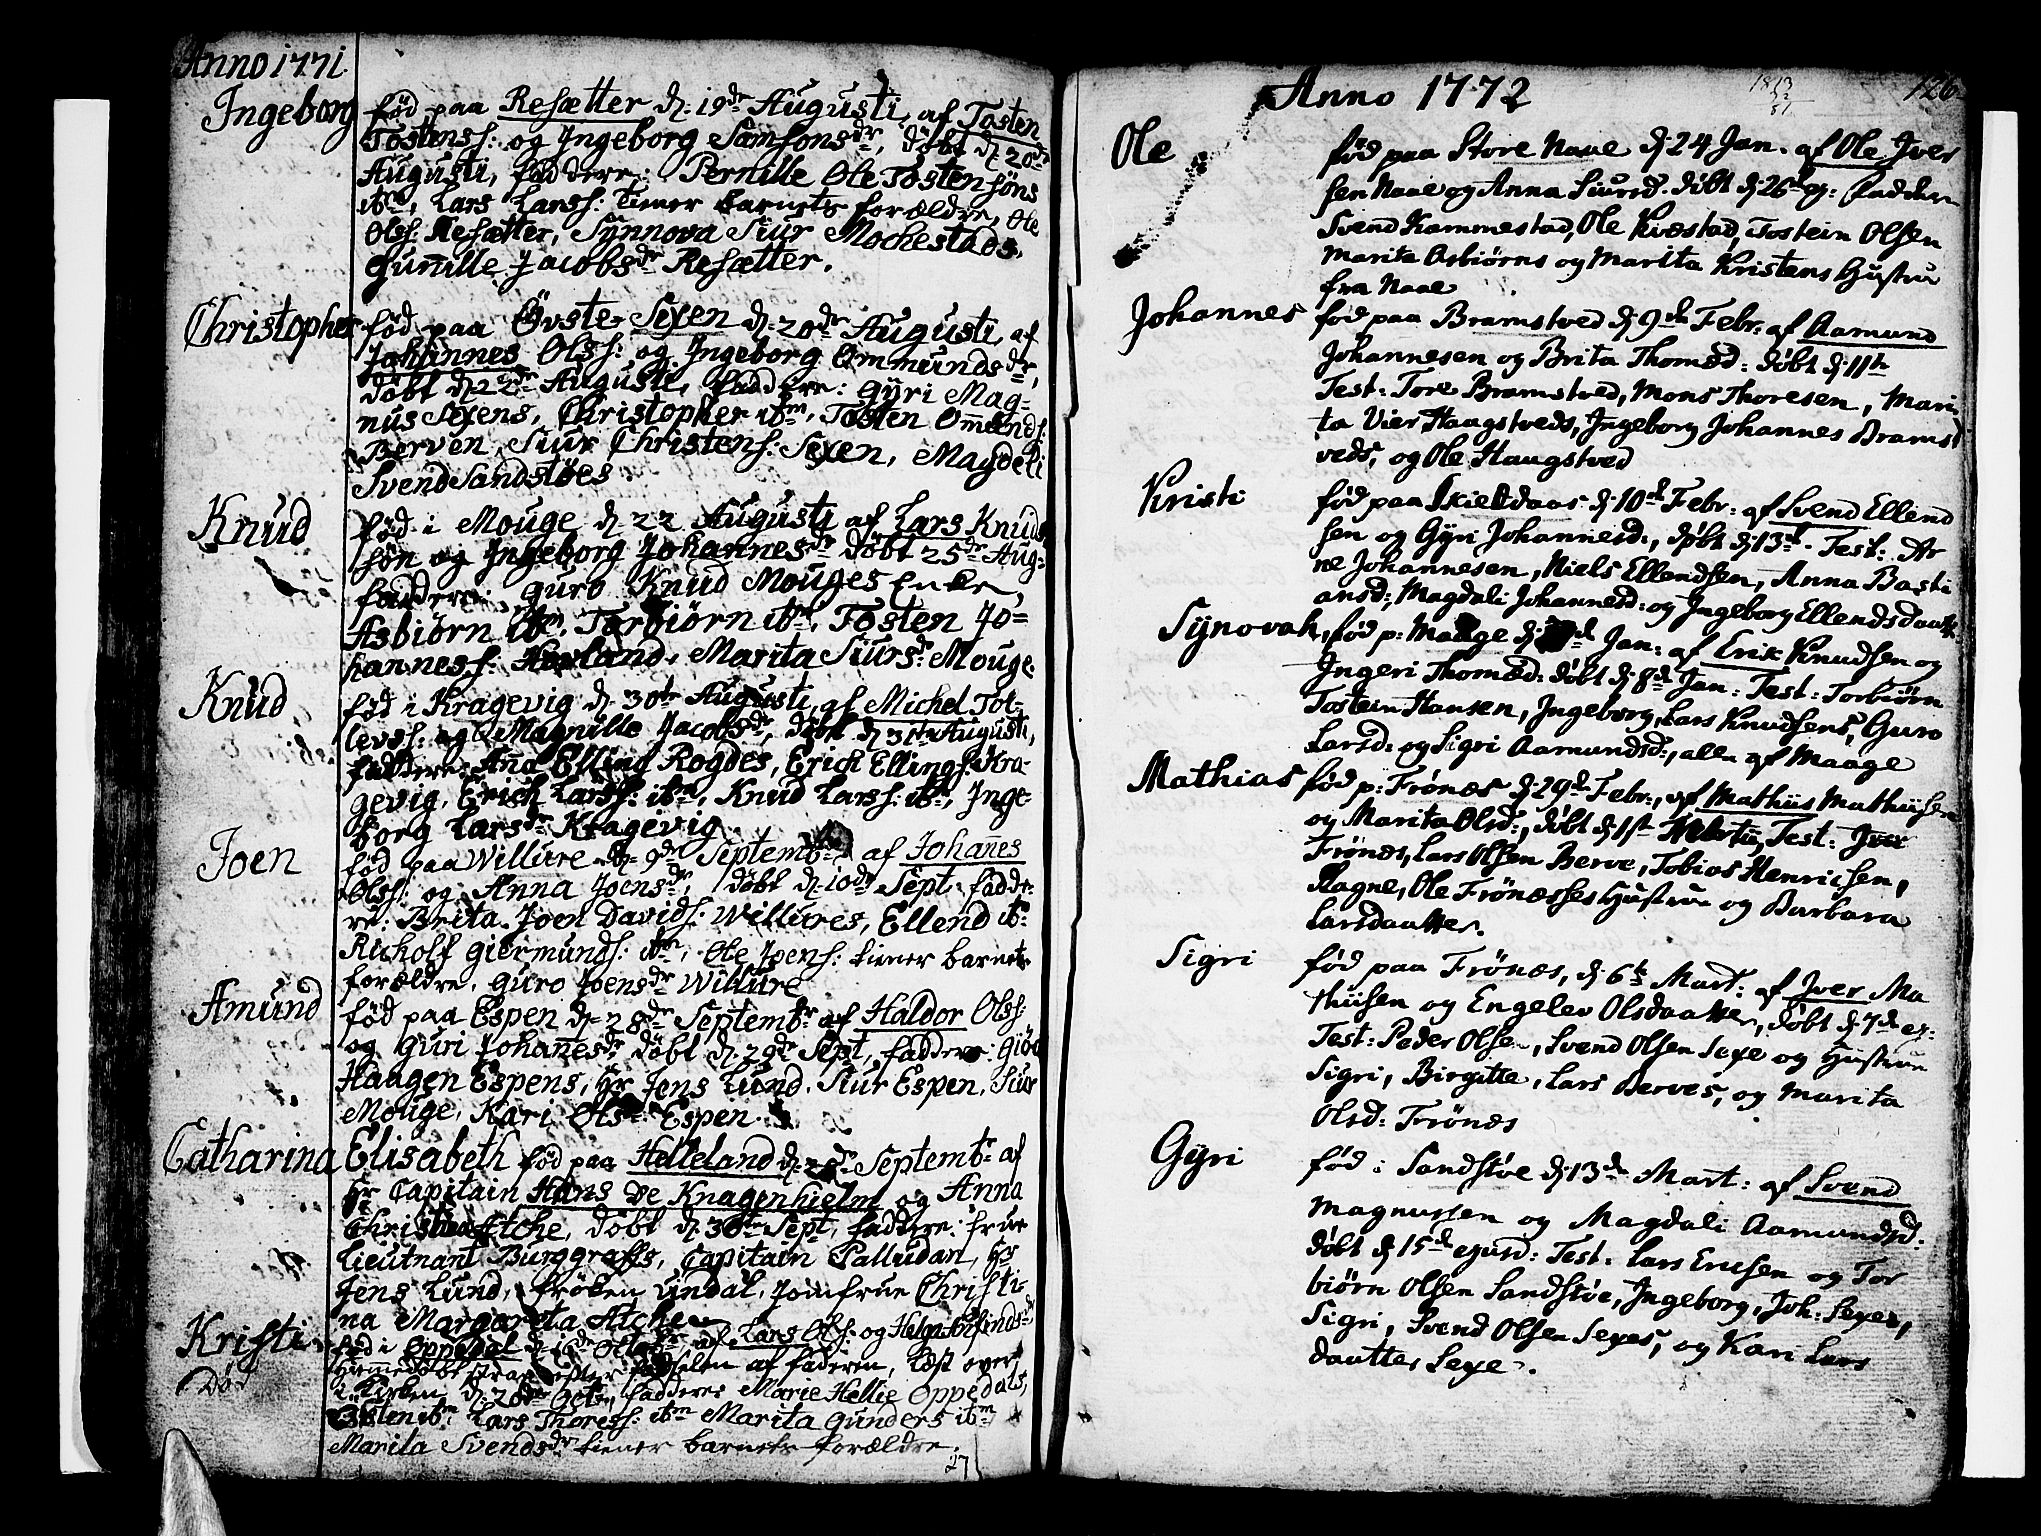 Anno 1771
Ingeborg
fød paa Resætter d. 19de Augusti, af Tosten
Tostenss: og Ingeborg Samsonsdr, døbt d. 20de
Augusti, faddere: Pernille Ole Tostensøns
ibm, Lars Larss: tiener barnets forældre, Ole
Olss: Resætter, Synnova Siur Mochestads,
Gunille Jacobsdr Resætter.
Christopher
fød paa Øvste Sexen d. 20de Augusti, af
Johannes Olss: og Ingeborg Ommundsdr,
døbt d. 22de Augusti, faddere: Gÿri Mag-
nus Sexens, Christopher ibm, Tosten Omunds:
Berven, Siur Christens: Sexen, Magdeli
Svend Sandstøes.
Knud
fød i Mouge d. 22 Augusti af Lars Knud-
søn og Ingeborg Johannesdr døbt 25de Aug-
faddere: Guro Knud Mouges Enke,
Asbiørn ibm, Torbiørn ibm, Tosten Jo=
hanness: Hovland, Marita Siursdr Mouge.
Knud
fød i Kragevig d. 30te Augusti, af Michel Tol-
levss: og Magnille Jacobsdr, døbt d. 31te Augusti,
faddere: Ana Elling Rogdes, Erich Ellings: Kra-
gevig, Erich Larss: ibm, Knud Larss: ibm, Inge-
borg Larsdr Kragevig.
Joen
fød paa Willure d. 9de Septembr af Johanes
Olss: og Anna Joensdr, døbt d. 10de Sept, fadde-
re: Brita Joen Davids: Willures, Ellend ibm
Richolf Giermunds: ibm, Ole Joens: tiener barnets
forældre, Guro Joensdr Willure
Amund
fød paa Espen d. 28de Septembr af Haldor Olss:
og Guri Johanesdr døbt d. 29de Sept, faddere: Giøa
Haagen Espens, Hr Jens Lund, Siur Espen, Siur
Mouge, Kari Olsdr Espen.
Catharina Elisabeth fød paa Helleland d. Septembr af
Hr Capitain Hans De Knagenhielm og Anna
Christina Atche, døbt d. 30te Sept, faddere: frue
Lieutnant Burggraffs, Capitain Palludan, Hr
Jens Lund, frøken Lindal, Jomfrue Christi-
na Margareta Atche
Kristi
Død
fød i Oppedal d. 16de Octobr, af Lars Olss: og Helga
hiemmedøbt strax efter fødselen af faderen, Læst over
i Kirken d. 20de Octr, faddere: Marie Hellie Oppedals,
ibm, Lars Thoress: ibm Marita Gunders ibm
Marita Svendsdr tiener barnets forældre.
27
Anno 1772
126
Ole
fød paa Store Naae d. 24 Jan. af Ole Iver
sen Naae og Anna Siursd: døbt d. 26 ej: Faddere
Svend Kammestad, Ole Kvæstad, Tostein Olsen
Marita Asbiørns og Marita Kristens Hustru
fra Naae
Johannes
fød paa Bramstved d. 9de Febr: af Aamund
Johannesen og Brita Thomæd: døbt d. 11te
Test: Tore Bramstved, Mons Thoresen, Mari
ta Vier Haagstveds, Ingeborg Johannes Bramst
veds, og Ole Haugstved
Kristi
fød paa Skieldaas d. 10de Febr: af Svend Ellend
sen og Gÿri Johannesd:, døbt d. 13de. Test: Ar
ne Johannesen, Niels Ellendsen, Anna Basti
ansd:, Magdali Johannesd: og Ingeborg Ellendsdaatter
Synovah, fød p: Maage d. Jan: af Erik Knudsen og
Ingeri Thomæd: døbt d. 8de Jan: Test: Torbiørn
Tostein Hansen, Ingeborg, Lars Knudsens, Guro
Larsd: og Sigri Aamundsd:, alle af Maage
Mathias fød p: Frönes d. 29de Febr:, af Mathiis Mathiisen
og Marita Olsd:, døbt d. 1ste Martii, Test: Iver
Frönes, Lars Olsen Berve, Tobias Henricsen,
Hagne, Ole Frönesses Hustru og Barbara
Larsdaatter.
Sigri
fød paa Frönes, d. 6te Mart: af Iver Ma
thiisen og Engelev Olsdaatter, døbt d. 7de ej:
Test: Peder Olsen, Svend Olsen Sexe og Hustrue
Sigri, Birgitte, Lars Berves, og Marita
Olsd: Frönes
Gÿri
fød i Sandstøe d. 13de Mart: af Svend
Magnussen og Magdali Aamundsd:
døbt d. 15de ejusd: Test: Lars Ericsen og Tor
biørn Olsen Sandstøe, Ingeborg, Joh: Sexes,
Sigri, Svend Olsen Sexes, og Kari Lars
daatter Sexe.